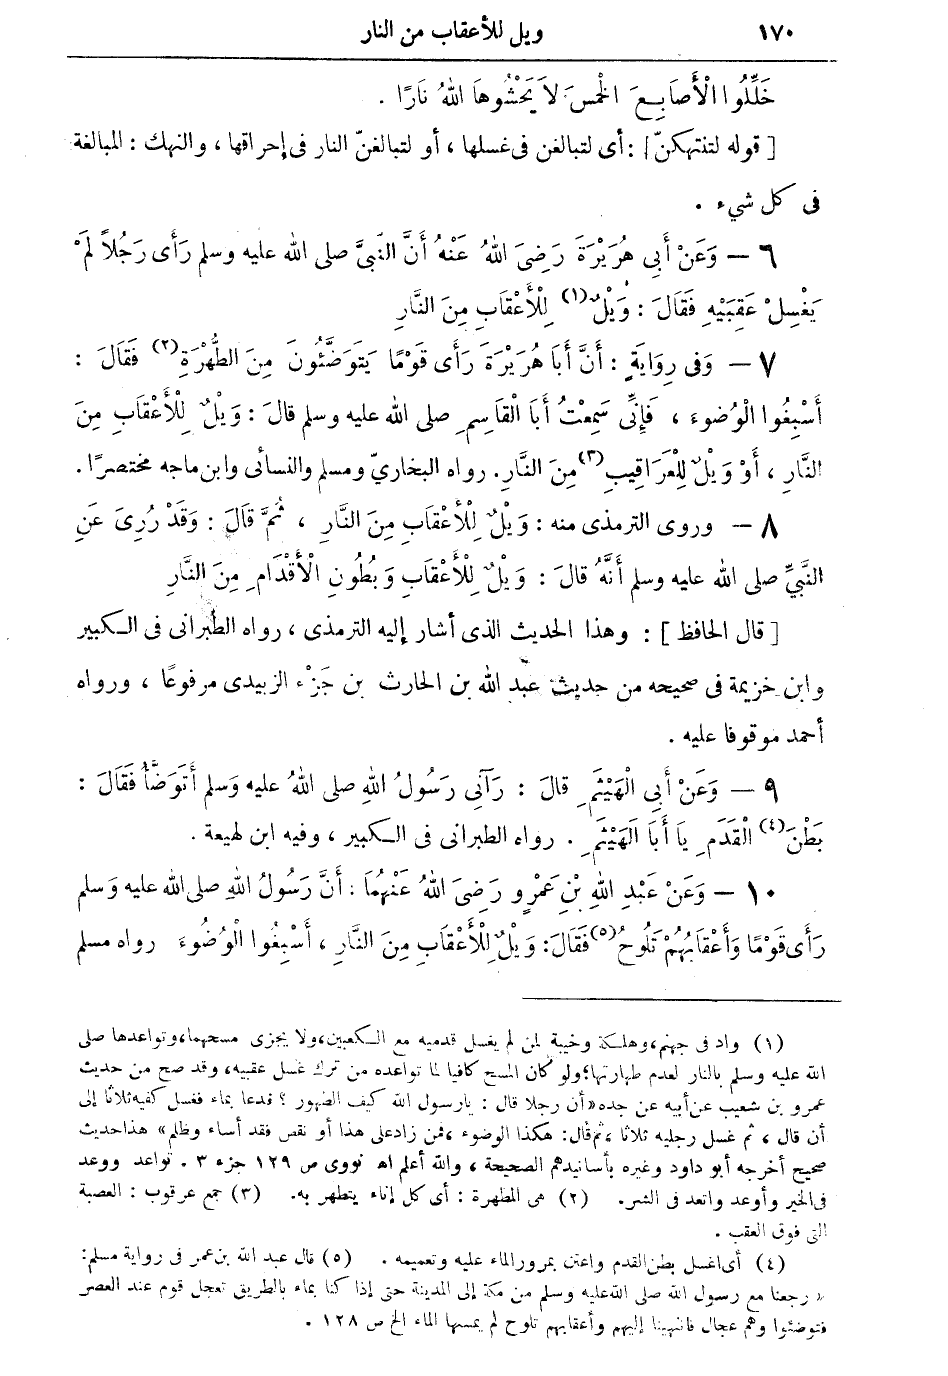 ١٧٠ ويل للأعقاب من النار
خَلِّلُوا الْأَصَابِعَ الْخَمْسَ لاَ يَحْشُوهَا اللهُ نَارًا .
[ قوله لتنتهكنّ ] : أى لتبالغن فى غسلها ، أو لتبالغنّ النار فى إحراقها ، والنهك : المبالغة
فى كل شيء .
٦ — وَعَنْ أَبِي هُرَيْرَةَ رَضِىَ اللهُ عَنْهُ أَنَّ النَّبِيَّ صلى الله عليه وسلم رَأَى رَجُلاً لَمْ
يَغْسِلْ عَقِبَيْهِ فَقَالَ : وَيْلٌ(١) لِلْأَعْقَابِ مِنَ النَّارِ
٧ — وَفِى رِوَايَةٍ : أَنَّ أَبَا هُرَيْرَةَ رَأَى قَوْمًا يَتَوَضَّئُونَ مِنَ الْطُّهْرَةِ(٢) فَقَالَ :
أَسْبِغُوا الْوُضُوءَ ، فَإِنِّى سَمِعْتُ أَبَا الْقَاسِمِ صلى الله عليه وسلم قالَ : وَيْلٌ لِلْأَعْقَابِ مِنَ
النَّارِ ، أَوْ وَيْلٌ لِلْعَرَاقِيبِ(٣) مِنَ النَّارِ . رواه البخارىّ ومسلم والنسائى وابن ماجه مختصرًا .
٨ — وروى الترمذى منه : وَيْلٌ لِلْأَعْقَابِ مِنَ النَّارِ ، ثُمَّ قَالَ : وَقَدْ رُوِىَ عَنِ
النَّبِيِّ صلى الله عليه وسلم أَنَّهُ قالَ : وَيْلٌ لِلْأَعْقَابِ وَبُطُونِ الْأَقْدَامِ مِنَ النَّارِ
[ قال الحافظ ] : وهذا الحديث الذى أشار إليه الترمذى ، رواه الطبرانى فى الكبير
وابن خزيمة فى صحيحه من حديث عبد الله بن الحارث بن جَزْء الزبيدى مرفوعًا ، ورواه
أحمد موقوفا عليه .
٩ — وَعَنْ أَبِي الْهَيْثَمِ قالَ : رَآنِى رَسُولُ اللهِ صلى اللهُ عليه وَسلم أَتَوَضَّأُ فَقَالَ :
بَطْنَ(٤) الْقَدَمِ يَا أَبَا الْهَيْثَمِ . رواه الطبرانى فى الكبير ، وفيه ابن لهيعة .
١٠ — وَعَنْ عَبْدِ اللهِ بْنِ عَمْرٍو رَضِىَ اللهُ عَنْهُمَا : أَنَّ رَسُولُ اللهِ صلى الله عليه وَسلم
رَأَى قَوْمًا وَأَعْقَابُهُمْ تَلُوحُ(٥) فَقَالَ : وَيْلٌ لِلْأَعْقَابِ مِنَ النَّارِ ، أَسْبِغُوا الْوُضُوءَ رواه مسلم
(١) واد فى جهنم ، وهلكة وخيبة لمن لم يغسل قدميه مع الكعبين ، ولا يجزى مسحهما ، وتواعدها صلى
الله عليه وسلم بالنار لعدم طهارتها ؛ ولو كان المسح كافيا لما تواعده من ترك غسل عقبيه ، وقد صح من حديث
عمرو بن شعيب عن أبيه عن جده « أن رجلا قال : يارسول الله كيف الطهور ؟ فدعا بماء فغسل كفيه ثلاثا إلى
أن قال ، ثم غسل رجليه ثلاثا ، ثم قال : هكذا الوضوء ، فمن زاد على هذا أو نقص فقد أساء وظلم » هذا حديث
صحيح أخرجه أبو داود وغيره بأسانيدهم الصحيحة ، والله أعلم اه نووى ص ١٢٩ جزء ٣ . تواعد ووعد
فى الخير وأوعد واتعد فى الشر . (٢) هى المطهرة : أى كل إناء يتطهر به . (٣) جمع عرقوب : العصبة
التى فوق العقب .
(٤) أى اغسل بطن القدم واعتن بمرور الماء عليه وتعميمه . (٥) قال عبد الله بن عمر فى رواية مسلم :
« رجعنا مع رسول الله صلى الله عليه وسلم من مكة إلى المدينة حتى إذا كنا بماء بالطريق تعجل قوم عند العصر
فتوضئوا وهم عجال فانتهينا إليهم وأعقابهم تلوح لم يمسها الماء الخ ص ١٢٨ .